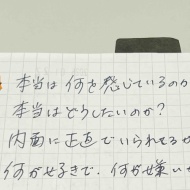 本当は何を感じているのか
本当はどうしたいのか?
内面に正直でいられてるか
何がせ好きで、何がせ嫌い